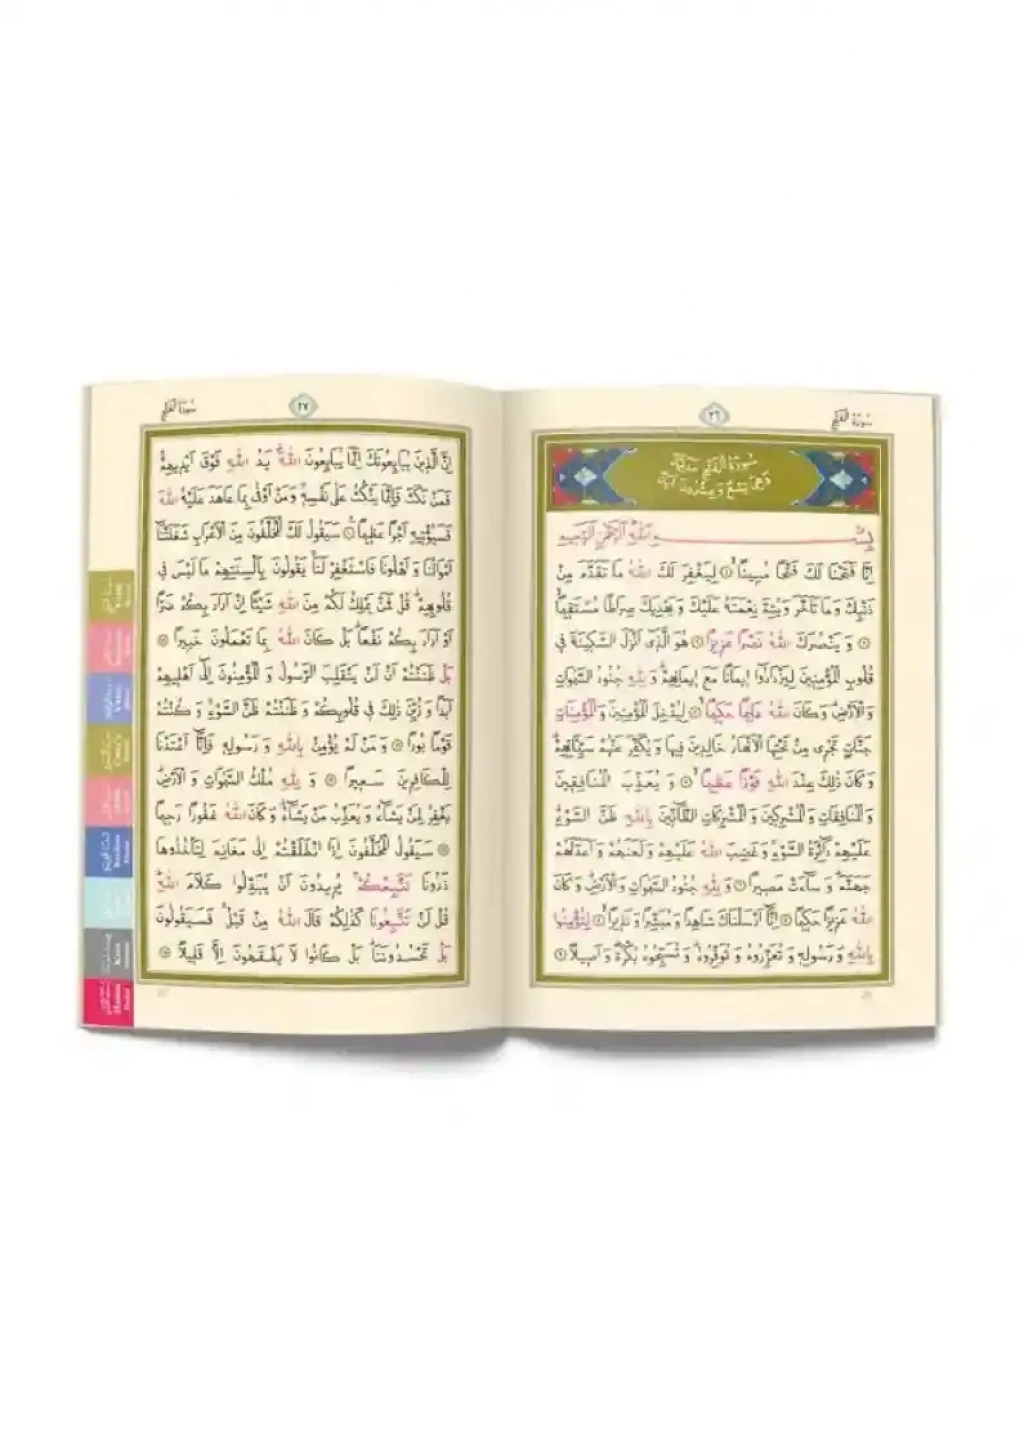 سُورَةُ الْفَتْحِ
٢٦
سُورَةُ الْفَتْحِ مَدَنِيَّةٌ
وَهِىَ تِسْعٌ وَعِشْرُونَ اٰيَةً
بِسْمِ اللّٰهِ الرَّحْمٰنِ الرَّحِيمِ
اِنَّا فَتَحْنَا لَكَ فَتْحًا مُبِينًا ۝ لِيَغْفِرَ لَكَ اللّٰهُ مَا تَقَدَّمَ مِنْ
ذَنْبِكَ وَمَا تَاَخَّرَ وَيُتِمَّ نِعْمَتَهُ عَلَيْكَ وَيَهْدِيَكَ صِرَاطًا مُسْتَقِيمًا
۝ وَيَنْصُرَكَ اللّٰهُ نَصْرًا عَزِيزًا ۝ هُوَ الَّذِى اَنْزَلَ السَّكِينَةَ فِى
قُلُوبِ الْمُؤْمِنِينَ لِيَزْدَادُوا اِيمَانًا مَعَ اِيمَانِهِمْ وَلِلّٰهِ جُنُودُ السَّمٰوَاتِ
وَالْاَرْضِ وَكَانَ اللّٰهُ عَلِيمًا حَكِيمًا ۝ لِيُدْخِلَ الْمُؤْمِنِينَ وَالْمُؤْمِنَاتِ
جَنَّاتٍ تَجْرِى مِنْ تَحْتِهَا الْاَنْهَارُ خَالِدِينَ فِيهَا وَيُكَفِّرَ عَنْهُمْ سَيِّئَاتِهِمْ
وَكَانَ ذٰلِكَ عِنْدَ اللّٰهِ فَوْزًا عَظِيمًا ۝ وَيُعَذِّبَ الْمُنَافِقِينَ
وَالْمُنَافِقَاتِ وَالْمُشْرِكِينَ وَالْمُشْرِكَاتِ الظَّانِّينَ بِاللّٰهِ ظَنَّ السَّوْءِ
عَلَيْهِمْ دَائِرَةُ السَّوْءِ وَغَضِبَ اللّٰهُ عَلَيْهِمْ وَلَعَنَهُمْ وَاَعَدَّ لَهُمْ
جَهَنَّمَ وَسَاءَتْ مَصِيرًا ۝ وَلِلّٰهِ جُنُودُ السَّمٰوَاتِ وَالْاَرْضِ وَكَانَ
اللّٰهُ عَزِيزًا حَكِيمًا ۝ اِنَّا اَرْسَلْنَاكَ شَاهِدًا وَمُبَشِّرًا وَنَذِيرًا ۝ لِتُؤْمِنُوا
بِاللّٰهِ وَرَسُولِهِ وَتُعَزِّرُوهُ وَتُوَقِّرُوهُ وَتُسَبِّحُوهُ بُكْرَةً وَاَصِيلًا ۝
٢٧
سُورَةُ الْفَتْحِ
اِنَّ الَّذِينَ يُبَايِعُونَكَ اِنَّمَا يُبَايِعُونَ اللّٰهَ يَدُ اللّٰهِ فَوْقَ اَيْدِيهِمْ
فَمَنْ نَكَثَ فَاِنَّمَا يَنْكُثُ عَلٰى نَفْسِهِ وَمَنْ اَوْفٰى بِمَا عَاهَدَ عَلَيْهُ اللّٰهَ
فَسَيُؤْتِيهِ اَجْرًا عَظِيمًا ۝ سَيَقُولُ لَكَ الْمُخَلَّفُونَ مِنَ الْاَعْرَابِ شَغَلَتْنَا
اَمْوَالُنَا وَاَهْلُونَا فَاسْتَغْفِرْ لَنَا يَقُولُونَ بِاَلْسِنَتِهِمْ مَا لَيْسَ فِى
قُلُوبِهِمْ قُلْ فَمَنْ يَمْلِكُ لَكُمْ مِنَ اللّٰهِ شَيْئًا اِنْ اَرَادَ بِكُمْ ضَرًّا
اَوْ اَرَادَ بِكُمْ نَفْعًا بَلْ كَانَ اللّٰهُ بِمَا تَعْمَلُونَ خَبِيرًا ۝
بَلْ ظَنَنْتُمْ اَنْ لَنْ يَنْقَلِبَ الرَّسُولُ وَالْمُؤْمِنُونَ اِلٰى اَهْلِيهِمْ
اَبَدًا وَزُيِّنَ ذٰلِكَ فِى قُلُوبِكُمْ وَظَنَنْتُمْ ظَنَّ السَّوْءِ وَكُنْتُمْ
قَوْمًا بُورًا ۝ وَمَنْ لَمْ يُؤْمِنْ بِاللّٰهِ وَرَسُولِهِ فَاِنَّا اَعْتَدْنَا
لِلْكَافِرِينَ سَعِيرًا ۝ وَلِلّٰهِ مُلْكُ السَّمٰوَاتِ وَالْاَرْضِ
يَغْفِرُ لِمَنْ يَشَاءُ وَيُعَذِّبُ مَنْ يَشَاءُ وَكَانَ اللّٰهُ غَفُورًا رَحِيمًا
۝ سَيَقُولُ الْمُخَلَّفُونَ اِذَا انْطَلَقْتُمْ اِلٰى مَغَانِمَ لِتَاْخُذُوهَا
ذَرُونَا نَتَّبِعْكُمْ يُرِيدُونَ اَنْ يُبَدِّلُوا كَلَامَ اللّٰهِ
قُلْ لَنْ تَتَّبِعُونَا كَذٰلِكُمْ قَالَ اللّٰهُ مِنْ قَبْلُ فَسَيَقُولُونَ
بَلْ تَحْسُدُونَنَا بَلْ كَانُوا لَا يَفْقَهُونَ اِلَّا قَلِيلًا ۝